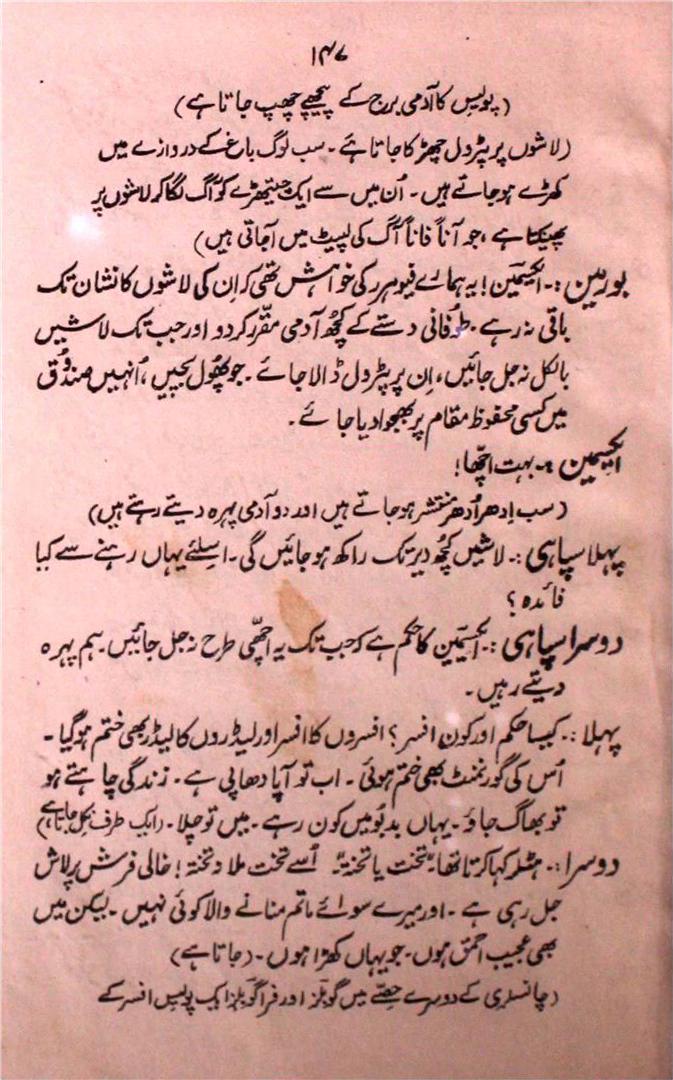 ۱۴۷
(پولیس کا آدمی برج کے پیچھے چھپ جاتا ہے)
(لاشوں پر پٹرول چھڑکا جاتا ہے۔ سب لوگ باغ کے دروازے میں
کھڑے ہو جاتے ہیں۔ اُن میں سے ایک چیتھڑے کو آگ لگا کر لاشوں پر
پھینکتا ہے، جو آناً فاناً آگ کی لپیٹ میں آجاتی ہیں)
بورمین :۔ ایکسیمین! یہ ہمارے فیوہرر کی خواہش تھی کہ اِن کی لاشوں کا نشان تک
باقی نہ رہے۔ طُوفانی دستے کے کچھ آدمی مقرّر کردو اور جب تک لاشیں
بالکل نہ جل جائیں، اِن پر پٹرول ڈالا جائے۔ جو پھُول بچیں، اُنہیں صندُوق
میں کسی محفوظ مقام پر بھجوا دیا جائے۔
ایکسیمین :۔ بہت اچّھا!
(سب اِدھر اُدھر منتشر ہو جاتے ہیں اور دو آدمی پہرہ دیتے رہتے ہیں)
پہلا سپاہی :۔ لاشیں کچھ دیر تک راکھ ہو جائیں گی۔ اسلئے یہاں رہنے سے کیا
فائدہ ؟
دوسرا سپاہی :۔ ایکسیمین کا حکم ہے کہ جب تک یہ اچّھی طرح نہ جل جائیں۔ ہم پہرہ
دیتے رہیں۔
پہلا :۔ کیسا حکم اور کون افسر؟ افسروں کا افسر اور لیڈروں کا لیڈر بھی ختم ہو گیا۔
اُس کی گورنمنٹ بھی ختم ہوئی۔ اب تو آپا دھاپی ہے۔ زندگی چاہتے ہو
تو بھاگ جاؤ۔ یہاں بدبُو میں کون رہے۔ میں تو چلا۔ (ایک طرف نکل جاتا ہے)
دوسرا :۔ ہٹلر کہا کرتا تھا۔ "تخت یا تختہ"۔ اُسے تخت ملا نہ تختہ! خالی فرش پر لاش
جل رہی ہے۔ اور میرے سوائے ماتم منانے والا کوئی نہیں۔ لیکن میں
بھی عجیب احمق ہوں۔ جو یہاں کھڑا ہوں۔ (جاتا ہے)
(چانسلری کے دوسرے حِصّے میں گوبلز اور فراگوبلز ایک پولیس افسر کے